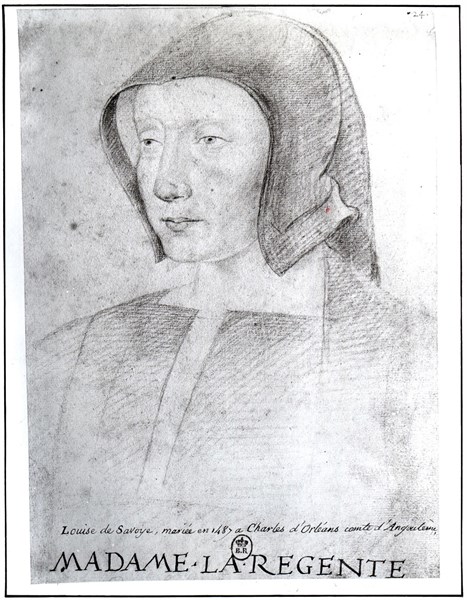 24.
Louise de Savoye, mariée en 1487 a Charles d'Orléans comte d'Angoulême,
B.R
MADAME·LA·REGENTE